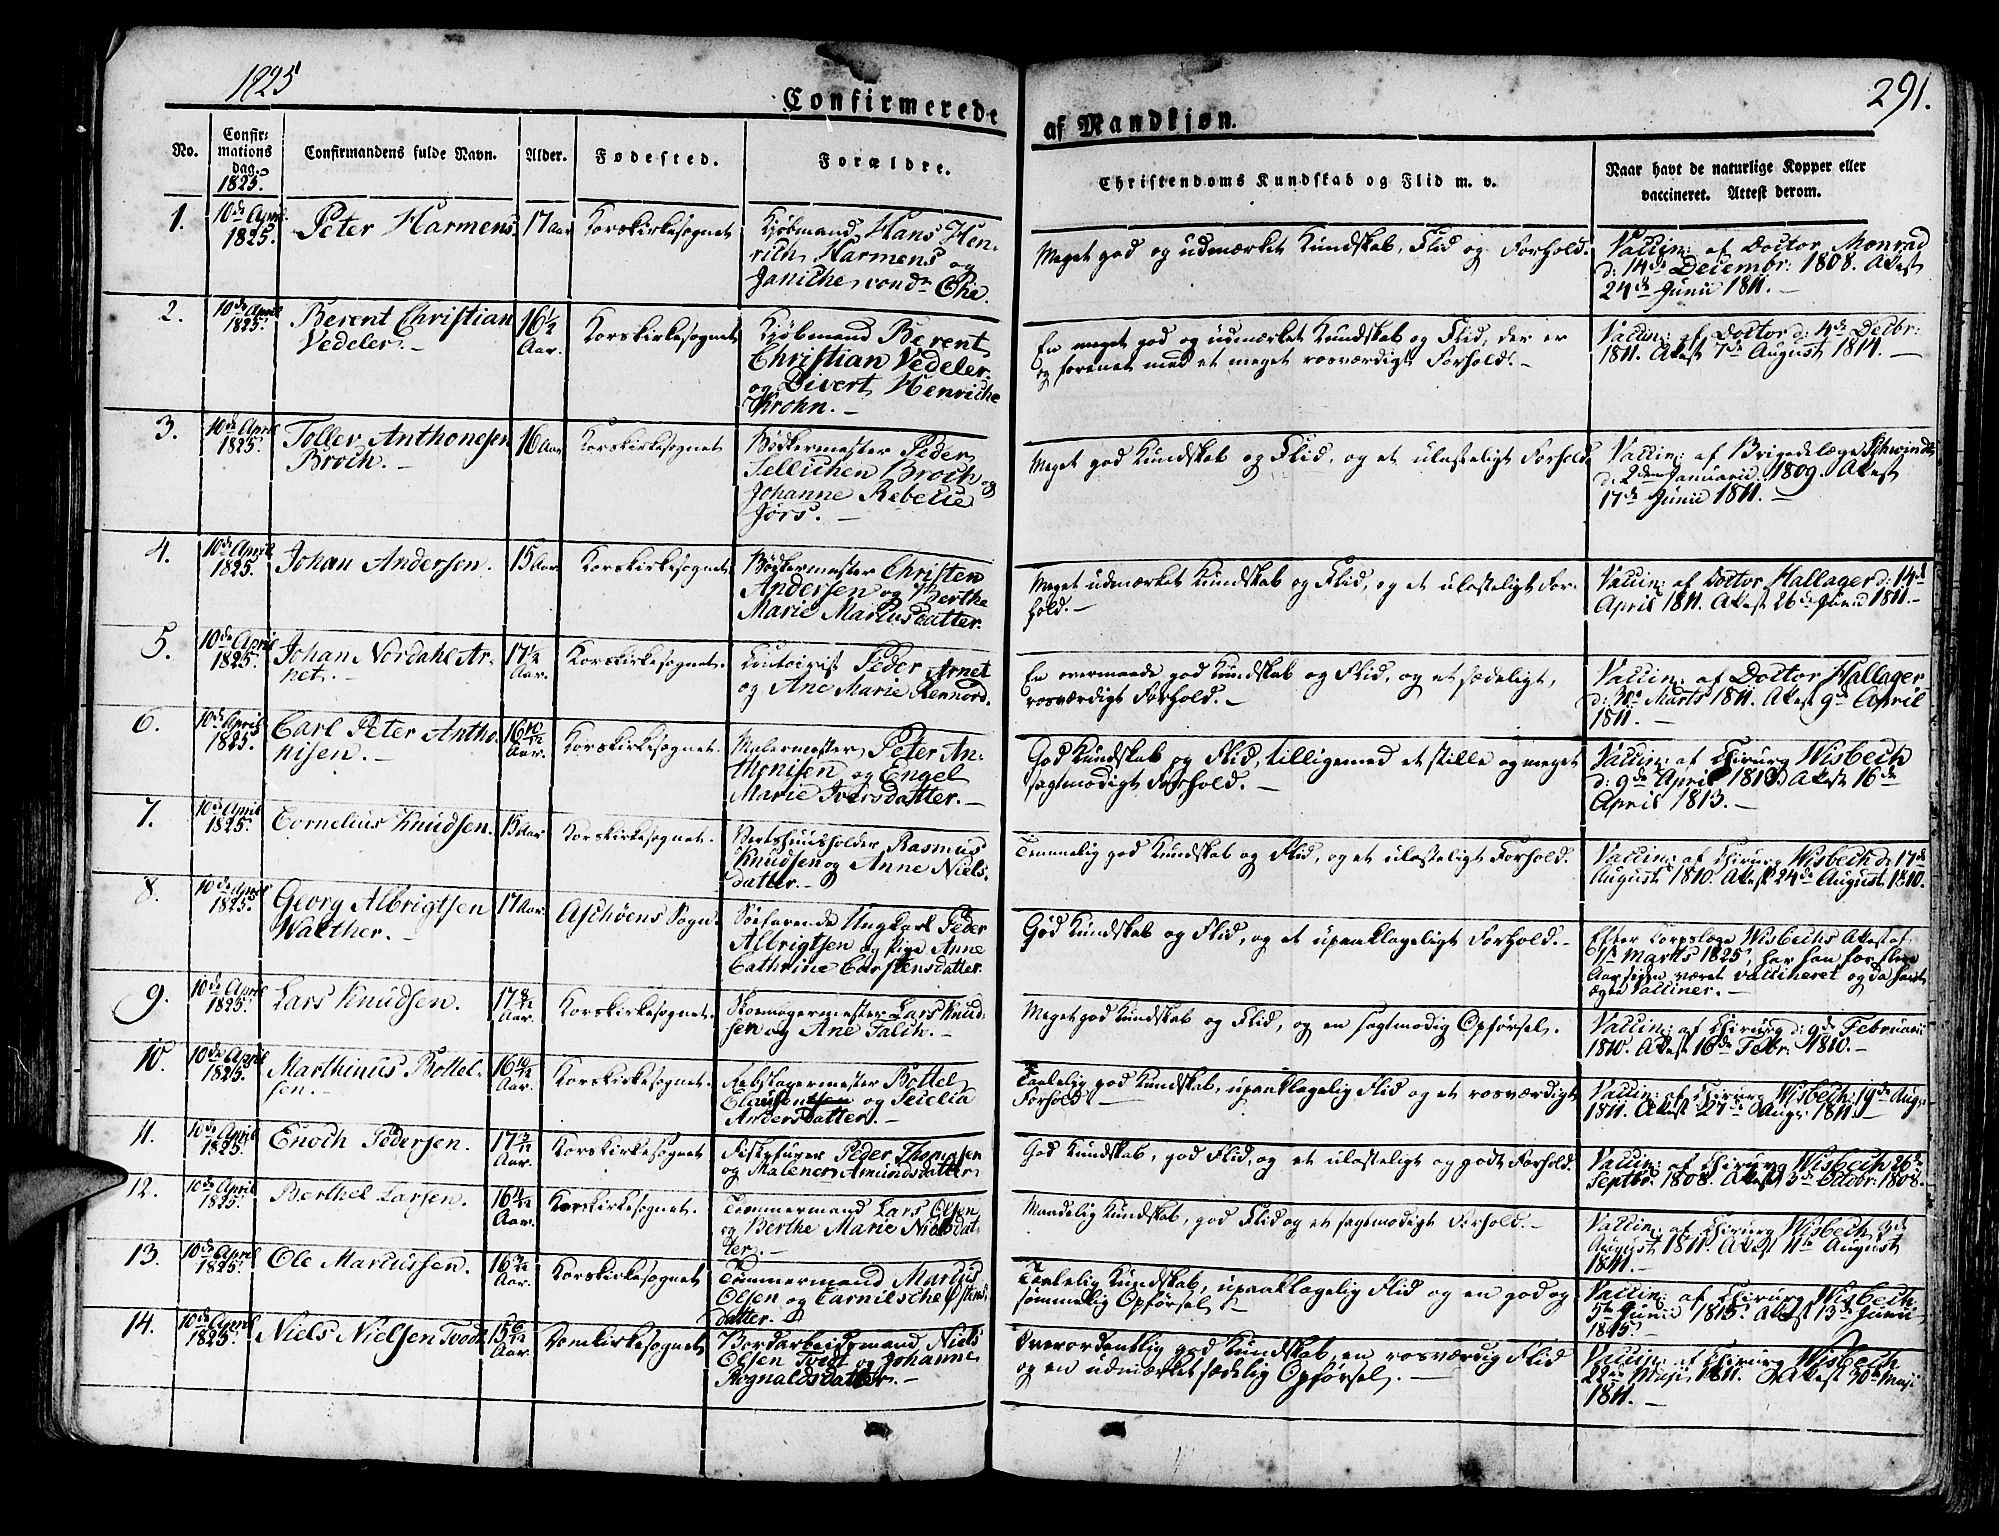 1825
291.
Confirmerede
af Mandkjøn.
No.
Confir-
mations
dag.
1825.
Confirmandens fulde Navn.
Alder.
Fødested.
Forældre.
Christendoms Kundskab og Flid m. v.
Naar havt de naturlige Kopper eller
vaccineret. Attest derom.
1.
10de April
1825.
Peter Harmens.
17 Aar
Korskirkesognet
Kjøbmand Hans Hen-
rich Harmens og
Janiche von der Ohe.
Meget god og udmærket Kundskab, Flid og Forhold.
Vaccin: af Doctor Monrad
d: 14de Decembr: 1808. Attest
24de Junii 1811.
2.
10de April
1825.
Berent Christian
Vedeler.
16½
Aar.
Korskirkesognet
Kjøbmand Berent
Christian Vedeler
og Divert Henriche
Krohn.
En meget god og udmærket Kundskab og Flid, der er
og forenet med et meget rosværdigt Forhold.
Vaccin: af Doctor d: 4de Decbr:
1811. Attest 7de August 1814.
3.
10de April
1825.
Toller Anthonesen
Broch.
16 Aar
Korskirkesognet
Bødkermester Peder
Sellichen Broch og
Johanne Rebecke
Jørs.
Meget god Kundskab og Flid, og et ulasteligt Forhold.
Vaccin: af Brigadelæge Schwindt
d. 2den Januarii 1809. Attest
17de Junii 1811.
4.
10de April
1825.
Johan Andersen.
15 Aar
Korskirkesognet.
Bødkermester Christen
Andersen og Berthe
Marie Marcusdatter.
Meget udmærket Kundskab og Flid, og et ulasteligt For-
hold.
Vaccin: af Doctor Hallager d: 14de
April 1811. Attest 26de Junii 1811.
5.
10de April
1825.
Johan Nordahl Ar-
net.
17½
Aar.
Korskirkesognet.
Contoirist Peder Arnet
og Ane Marie Rennord.
En overmaade god Kundskab og Flid, og et sædeligt,
rosværdigt Forhold.
Vaccin: af Doctor Hallager
d: 30te Marts 1811. Attest 9de April
1811.
6.
10de April
1825.
Carl Peter Antho-
nisen.
16 10/12
Aar.
Korskirkesognet.
Malermester Peter An-
thonisen og Engel
Marie Iversdatter.
God Kundskab og Flid, tilligemed et stille og meget
sagtmodigt Forhold.
Vaccin: af Chirurg Wisbech
d: 9de April 1813. Attest 16de
April 1813.
7.
10de April
1825.
Cornelius Knudsen.
15 Aar
Korskirkesognet.
Vertshuusholder Rasmus
Knudsen og Anne Niels-
datter.
Temmelig god Kundskab og Flid, og et ulasteligt Forhold.
Vaccin: af Chirurg Wisbech d: 17de
August 1810. Attest 24de August 1810.
8.
10de April
1825.
Georg Albrigtsen
Walther.
17 Aar.
Aschøens Sogn.
Søefarende Ungkarl Peder
Albrigtsen og Pige Anne
Cathrine Carstensdatter.
God Kundskab og Flid, og et upaaklageligt Forhold.
Efter Corpslæge Wisbechs Attest af
1ste Marts 1825, har han for flere
Aar siden været vaccineret og da havt
ægte Vacciner.
9.
10de April
1825.
Lars Knudsen.
17 8/12
Aar.
Korskirkesognet.
Skoemagermester Lars Knud-
sen og Ane Falch.
Meget god Kundskab og Flid, og en sagtmodig Opførsel.
Vaccin: af Chirurg d: 9de Februarii
1810. Attest 16de Febr: 1810.
10.
10de April
1825.
Marthinus Bottel-
sen.
16 10/12
Aar.
Korskirkesognet.
Rebslagermester Bottel
Clausen og Seielia
Andersdatter.
Taalelig god Kundskab, upaaklagelig Flid og et rosværdigt
Forhold.
Vaccin: af Chirurg Wisbech: 19de Aug:
1811. Attest 27de Aug: 1811.
11.
10de April
1825.
Enoch Pedersen.
17 5/12
Aar.
Korskirkesognet
Fiskefører Peder Thomsen
og Malene Amundsdatter.
God Kundskab, god Flid, og et ulasteligt og godt Forhold.
Vaccin: af Chirurg Wisbech 26de
Septbr: 1808. Attest 3de Octobr: 1808.
12.
10de April
1825.
Berthel Larsen.
16 4/12
Aar.
Korskirkesognet.
Tømmermand Lars Olsen
og Berthe Marie Nielsdat-
ter.
Maadelig Kundskab, god Flid og et sagtmodigt Forhold.
Vaccin: af Chirurg Wisbech 3de
August 1811. Attest 11te August
1811.
13.
10de April
1825.
Ole Marcussen.
16 3/12
Aar.
Korskirkesognet
Tømmermand Marcus
Olsen og Carnilsche
datter.
Taalelig Kundskab, upaaklagelig Flid og en god og
sømmelig Opførsel.
Vaccin: af Chirurg Wisbech
5te Junii 1815. Attest 13de Junii
1815.
14.
10de April
1825.
Niels Nielsen Tvedt
15 6/12
Aar.
Domkirkesognet
Bordarbeidsmand Niels
Olsen Tvedt og Johanne
Rognaldsdatter.
Overordentlig god Kundskab, en rosværdig Flid
og en udmærket sædelig Opførsel.
Vaccin: af Chirurg Wisbech
22de Maji 1811. Attest 30te Maji
1811.